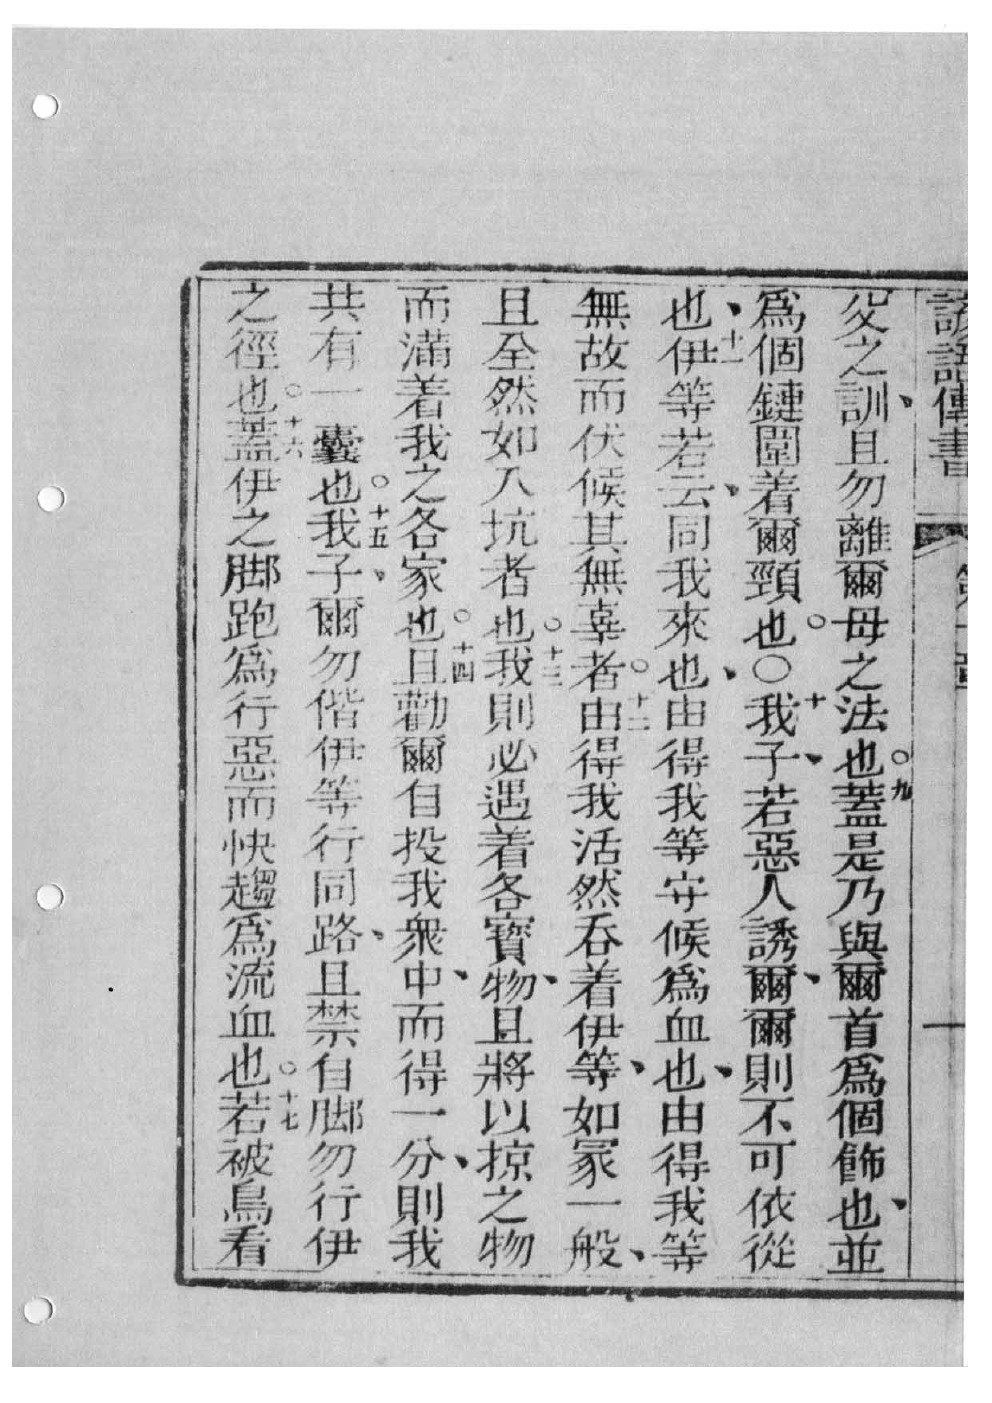 諺語傳書
父之訓、且勿離爾母之法也。九蓋是乃與爾首爲個飾也、並
爲個鏈圍着爾頸也。〇十我子、若惡人誘爾、爾則不可依從
也、十一伊等若云、同我來也、由得我等守候爲血也、由得我等
無故而伏候其無辜者。十二由得我活然吞着伊等、如冢一般、
且全然如入坑者也。十三我則必遇着各寶物、且將以掠之物
而滿着我之各家也。十四且勸爾自投我衆中、而得一分、則我
共有一囊也。十五我子、爾勿偕伊等行同路、且禁自脚勿行伊
之徑也。十六蓋伊之脚跑爲行惡而快趨爲流血也。十七若被鳥看